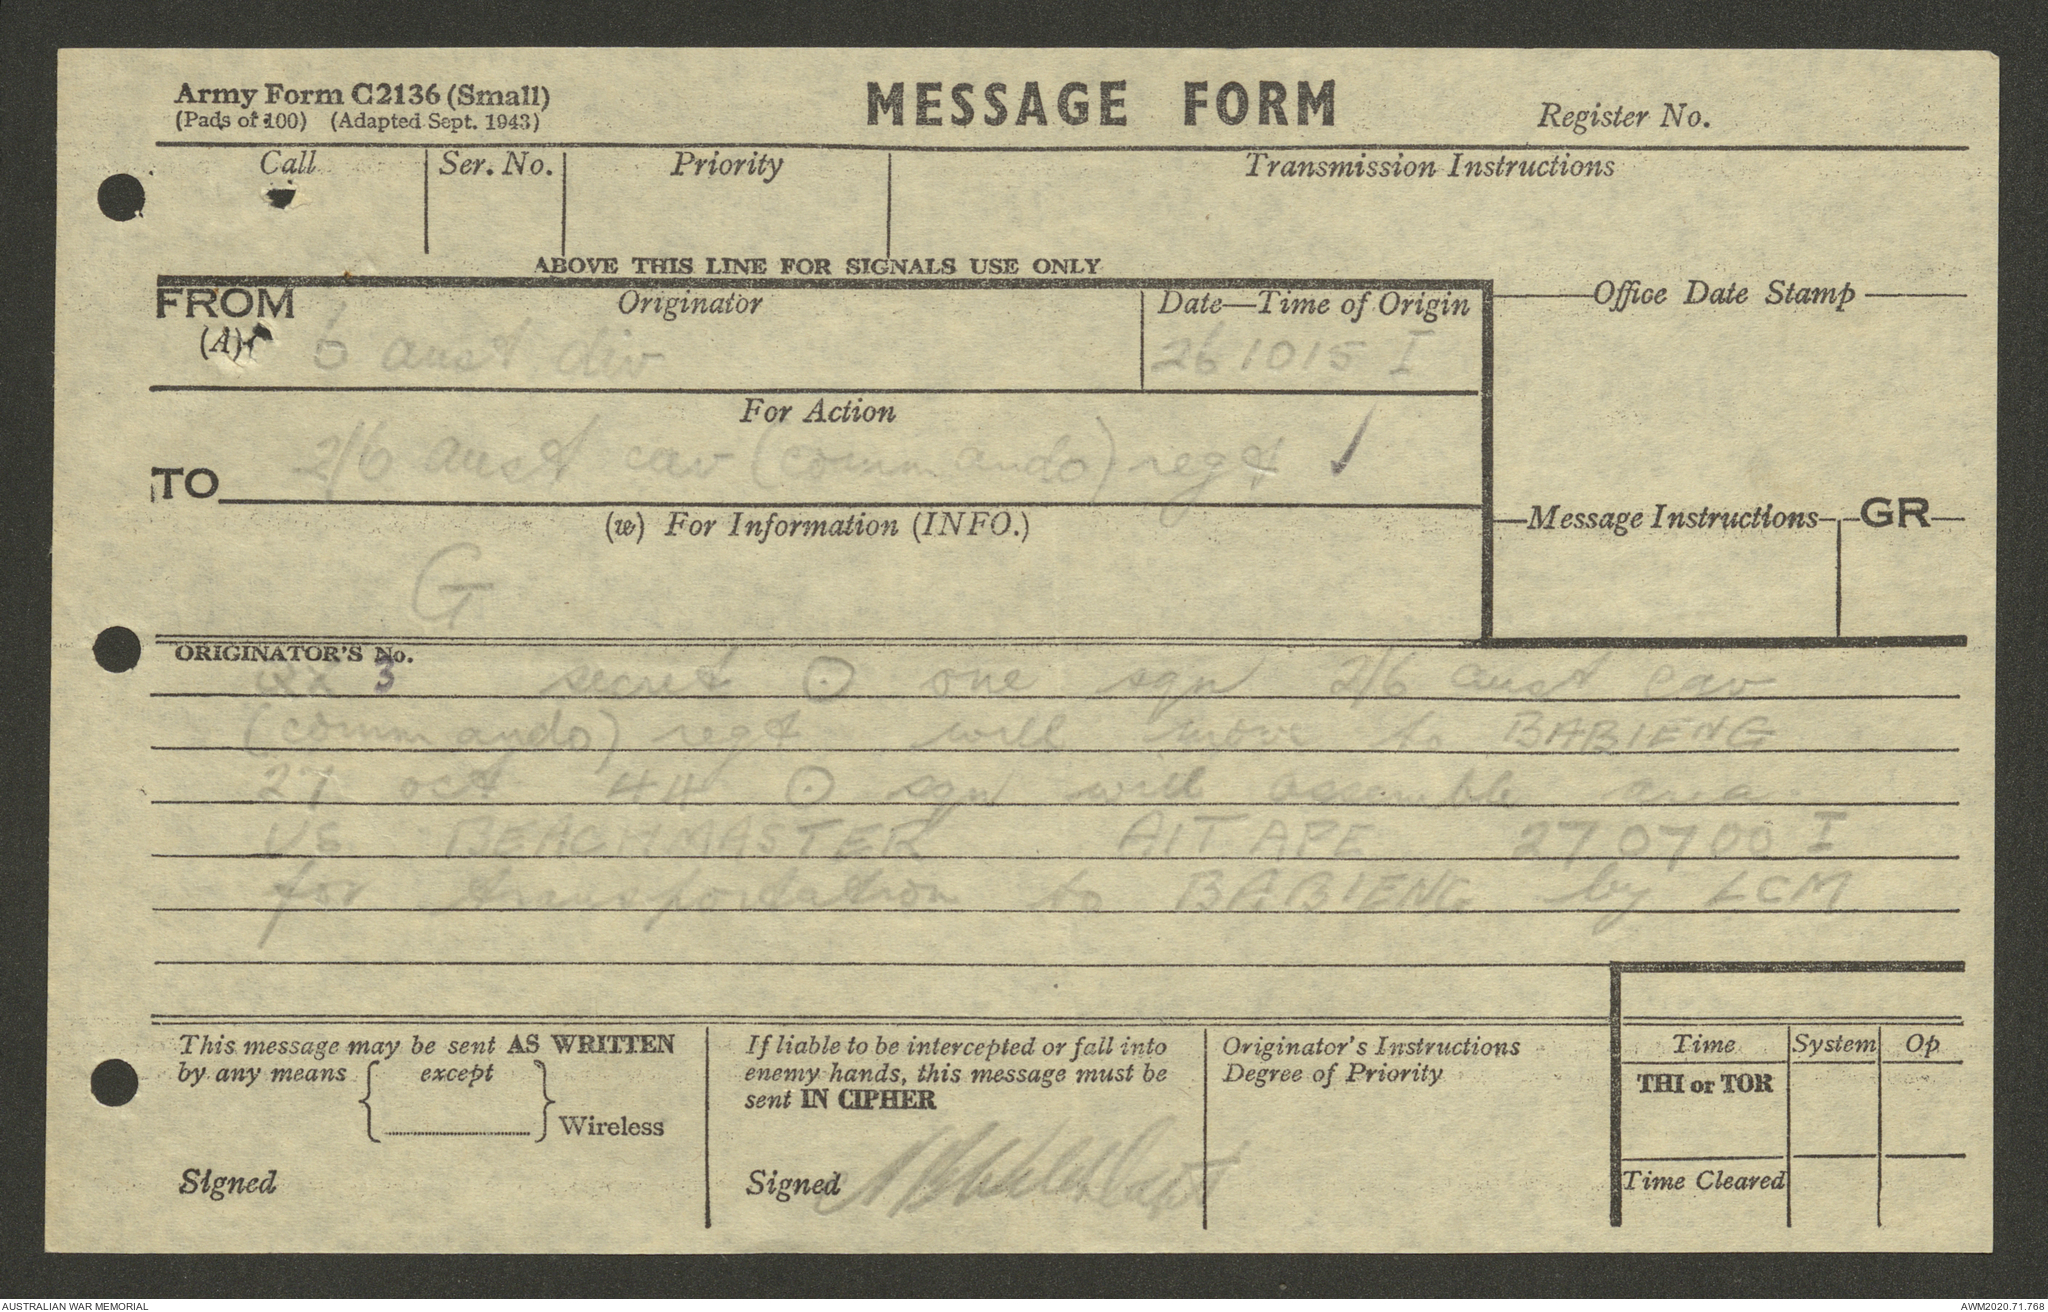 Army Form C2136 (Small)
(Pads of 100) (Adapted Sept. 1943)
MESSAGE FORM
Register No.
Call
Ser. No.
Priority
Transmission Instructions
ABOVE THIS LINE FOR SIGNALS USE ONLY
FROM
(A)
Originator
Date—Time of Origin
Office Date Stamp
6 aust div
261015 I
For Action
2/6 aust cav (commando) regt ✓
TO
(w) For Information (INFO.)
Message Instructions
GR
G
ORIGINATOR'S No.
3 secret ⊙ one sqn 2/6 aust cav
(commando) regt will move to BABIENG
27 oct 44 ⊙ sqn will assemble area
US BEACHMASTER AITAPE 270700 I
for transportation to BABIENG by LCM
This message may be sent AS WRITTEN
by any means { except } Wireless
Signed
If liable to be intercepted or fall into
enemy hands, this message must be
sent IN CIPHER
Signed
Capt
Originator's Instructions
Degree of Priority
Time
System
Op
THI or TOR
Time Cleared
AUSTRALIAN WAR MEMORIAL
AWM2020.71.768